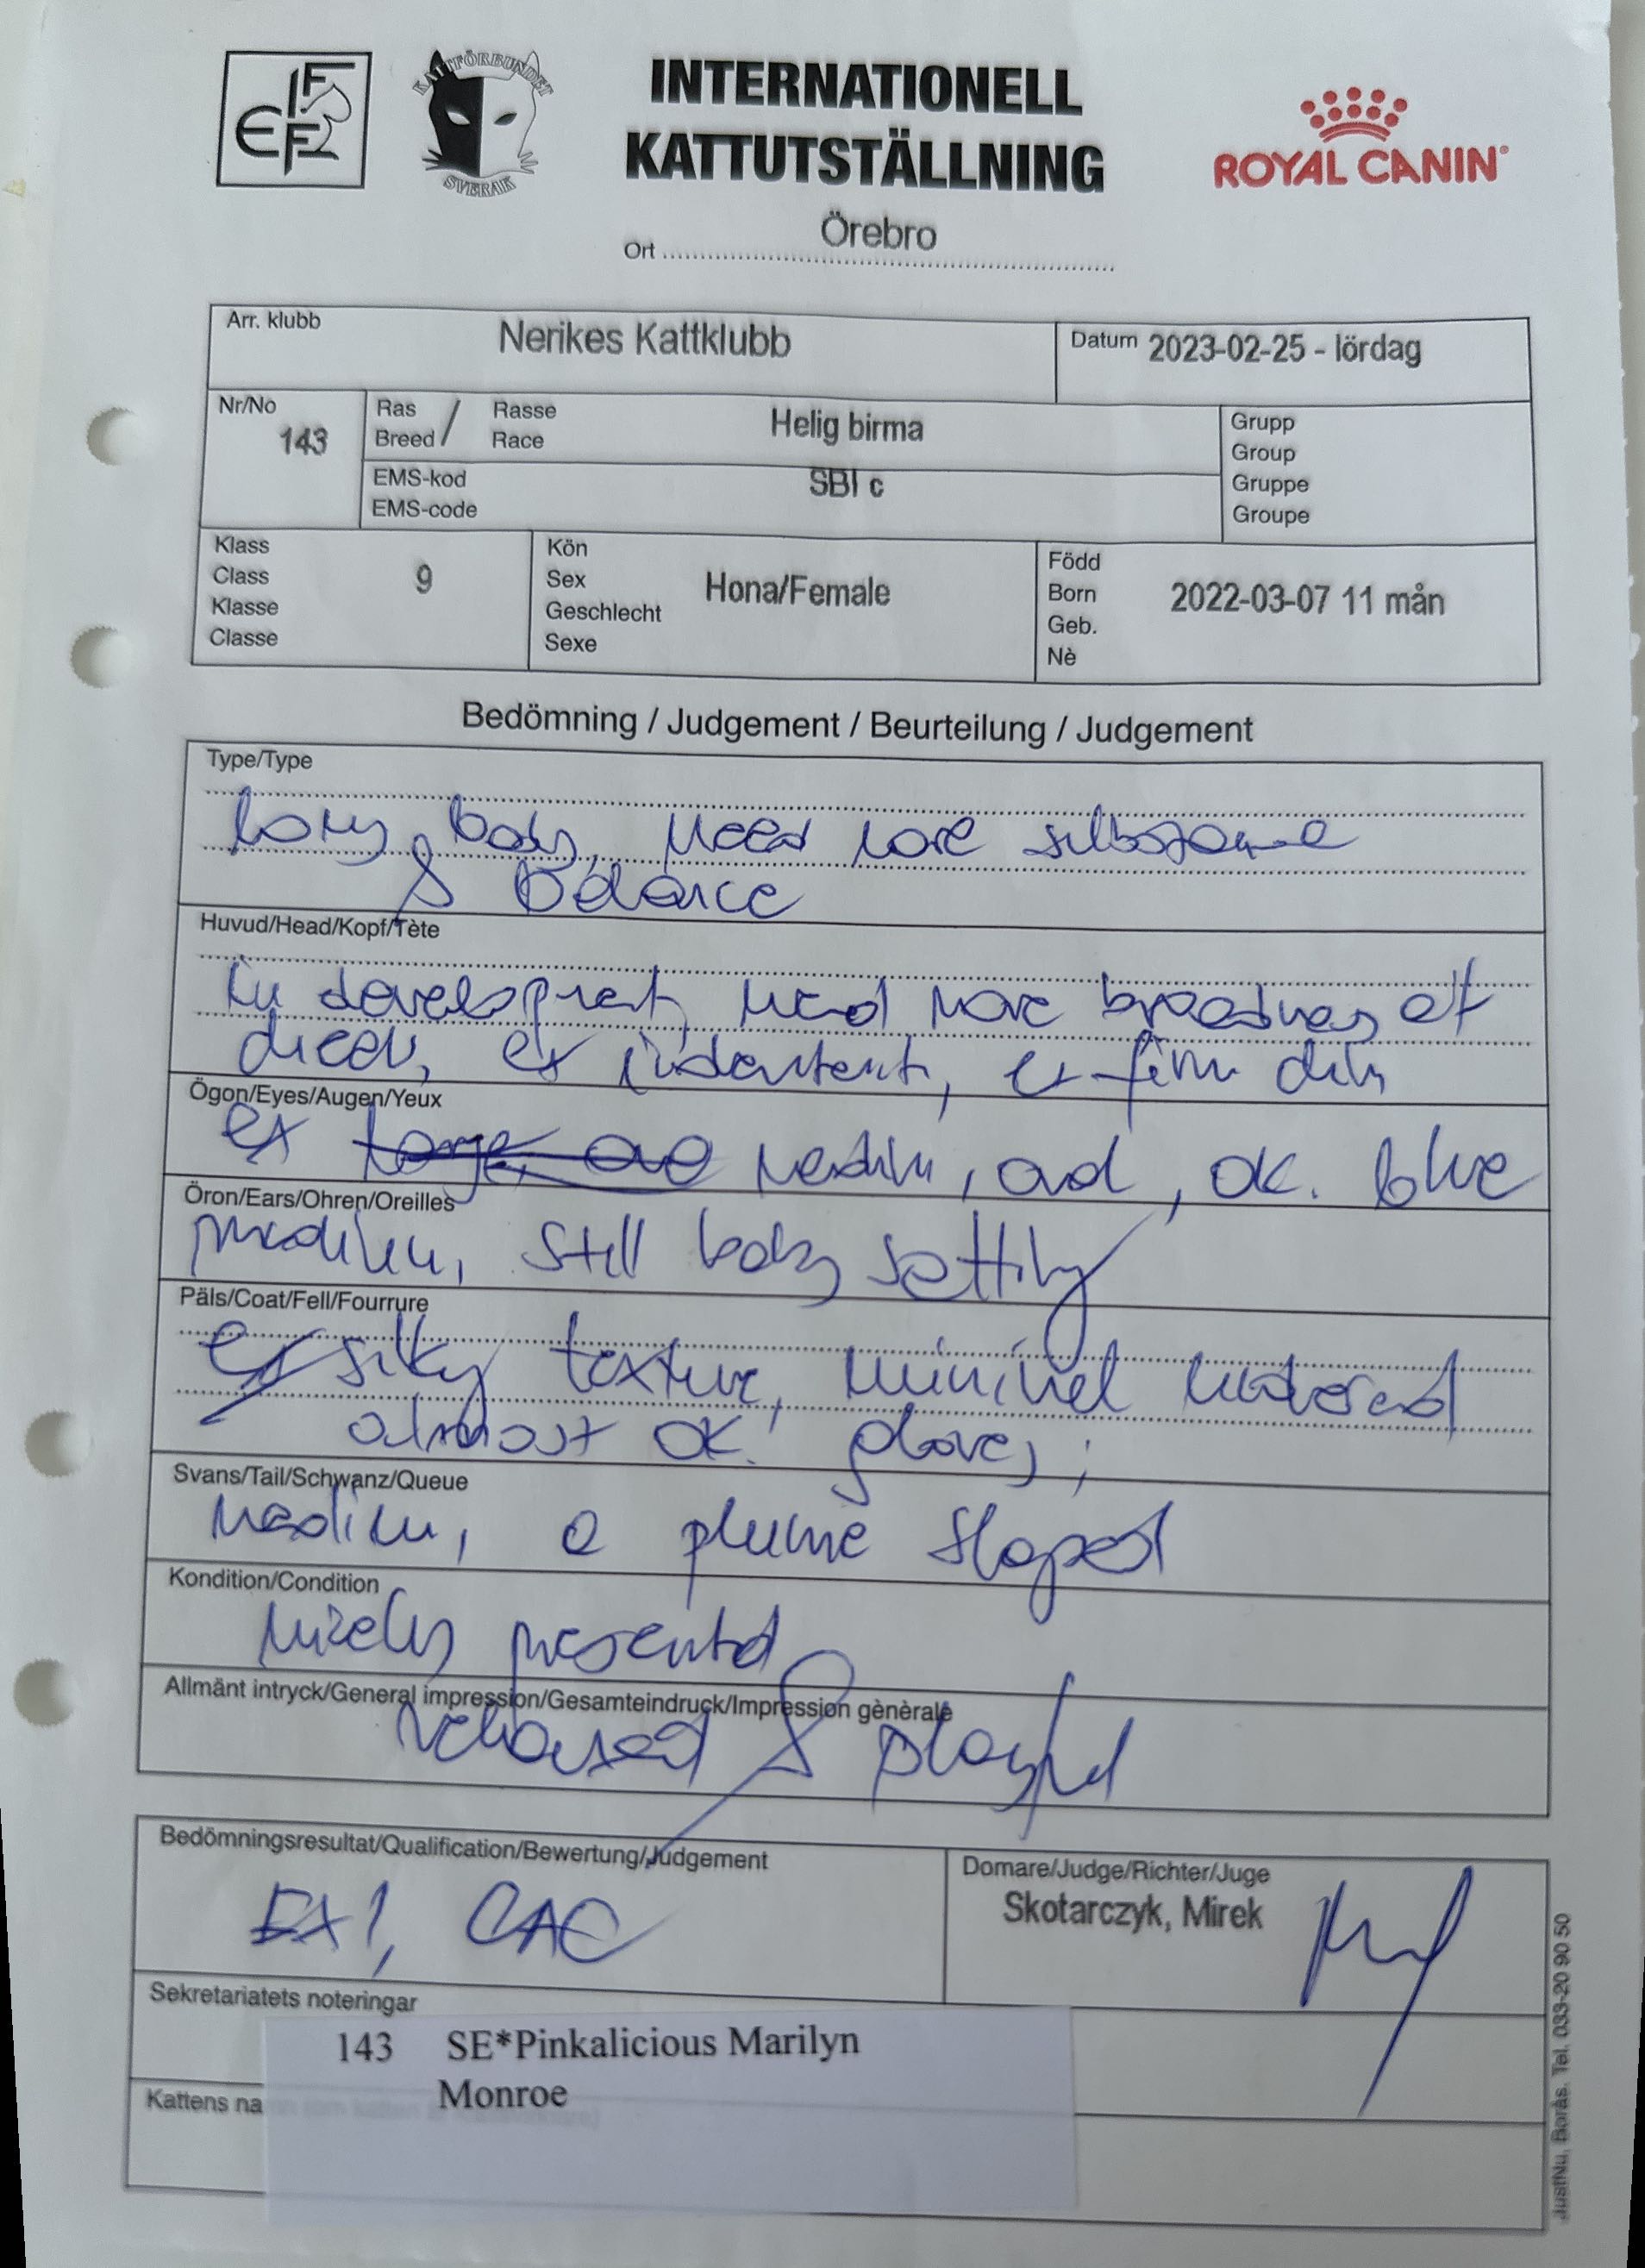 FIFe
KATTFÖRBUNDET
SVERAK
INTERNATIONELL
KATTUTSTÄLLNING
ROYAL CANIN
Ort Örebro
Arr. klubb Nerikes Kattklubb
Datum 2023-02-25 - lördag
Nr/No
143
Ras / Rasse
Breed Race
Helig birma
EMS-kod
EMS-code
SBI c
Grupp
Group
Gruppe
Groupe
Klass
Class
Klasse
Classe
9
Kön
Sex
Geschlecht
Sexe
Hona/Female
Född
Born
Geb.
Nè
2022-03-07 11 mån
Bedömning / Judgement / Beurteilung / Judgement
Type/Type
long body, need more substance
& balance
Huvud/Head/Kopf/Tète
in development, need more broadness at
cheek, ex indentent, ex firm chin
Ögon/Eyes/Augen/Yeux
ex medium, oval, ok. blue
Öron/Ears/Ohren/Oreilles
medium, still baby setting
Päls/Coat/Fell/Fourrure
ex silky texture, minimal undercoat
almost ok. gloves;
Svans/Tail/Schwanz/Queue
medium, a plume shaped
Kondition/Condition
nicely presented
Allmänt intryck/General impression/Gesamteindruck/Impression gènèrale
relaxed & playful
Bedömningsresultat/Qualification/Bewertung/Judgement
EX1, CAC
Domare/Judge/Richter/Juge
Skotarczyk, Mirek
Sekretariatets noteringar
143 SE*Pinkalicious Marilyn
Monroe
Kattens na
JustNu, Borås. Tel. 033-20 90 50